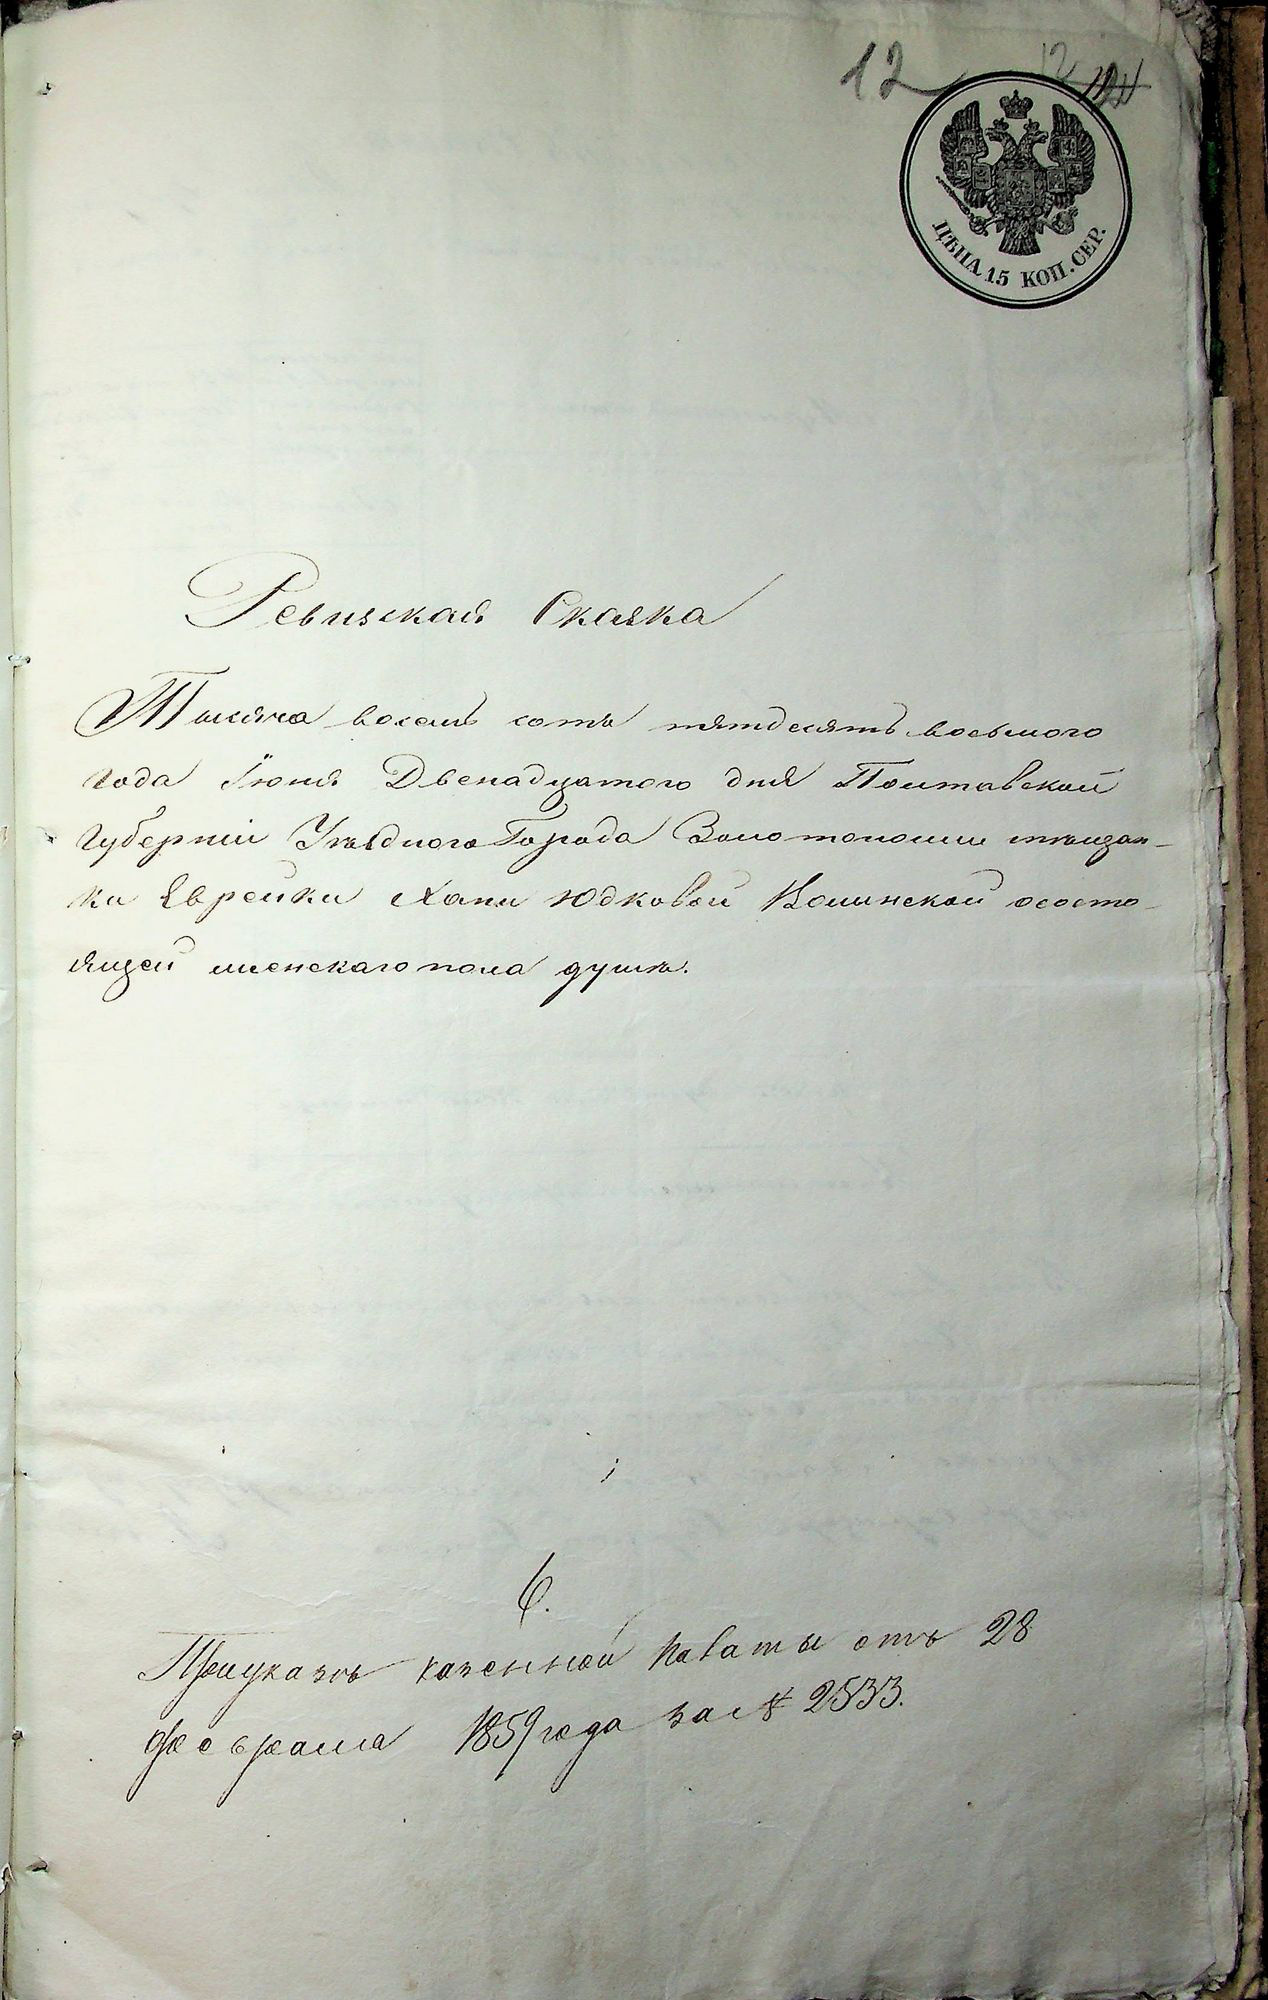 12
12
ЦѢНА 15 КОП. СЕР.
Ревизская Сказка
Тысяча восемь сотъ пятдесятъ восьмого
года Іюня Двенадцатого дня Полтавской
губерніи Уѣздного Города Золотоноши мѣщан-
ки Еврейки Хани Юдковой Волинской ососто-
ящей женскаго пола душѣ.
6.
При указѣ казенной Палаты отъ 28
февраля 1859 года за № 2533.